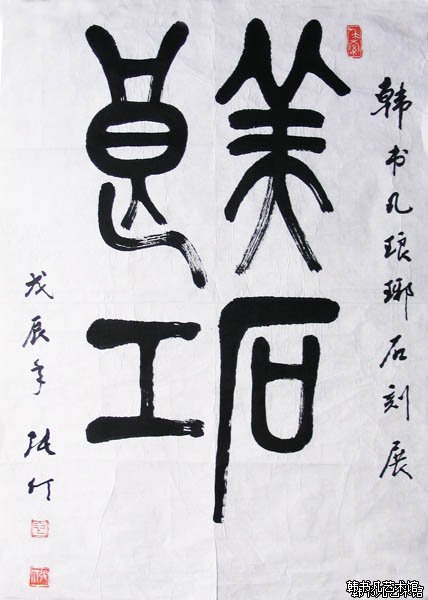 韩书凡琅琊石刻展
美石
良工
戊辰年 张仃
韩书凡艺术馆